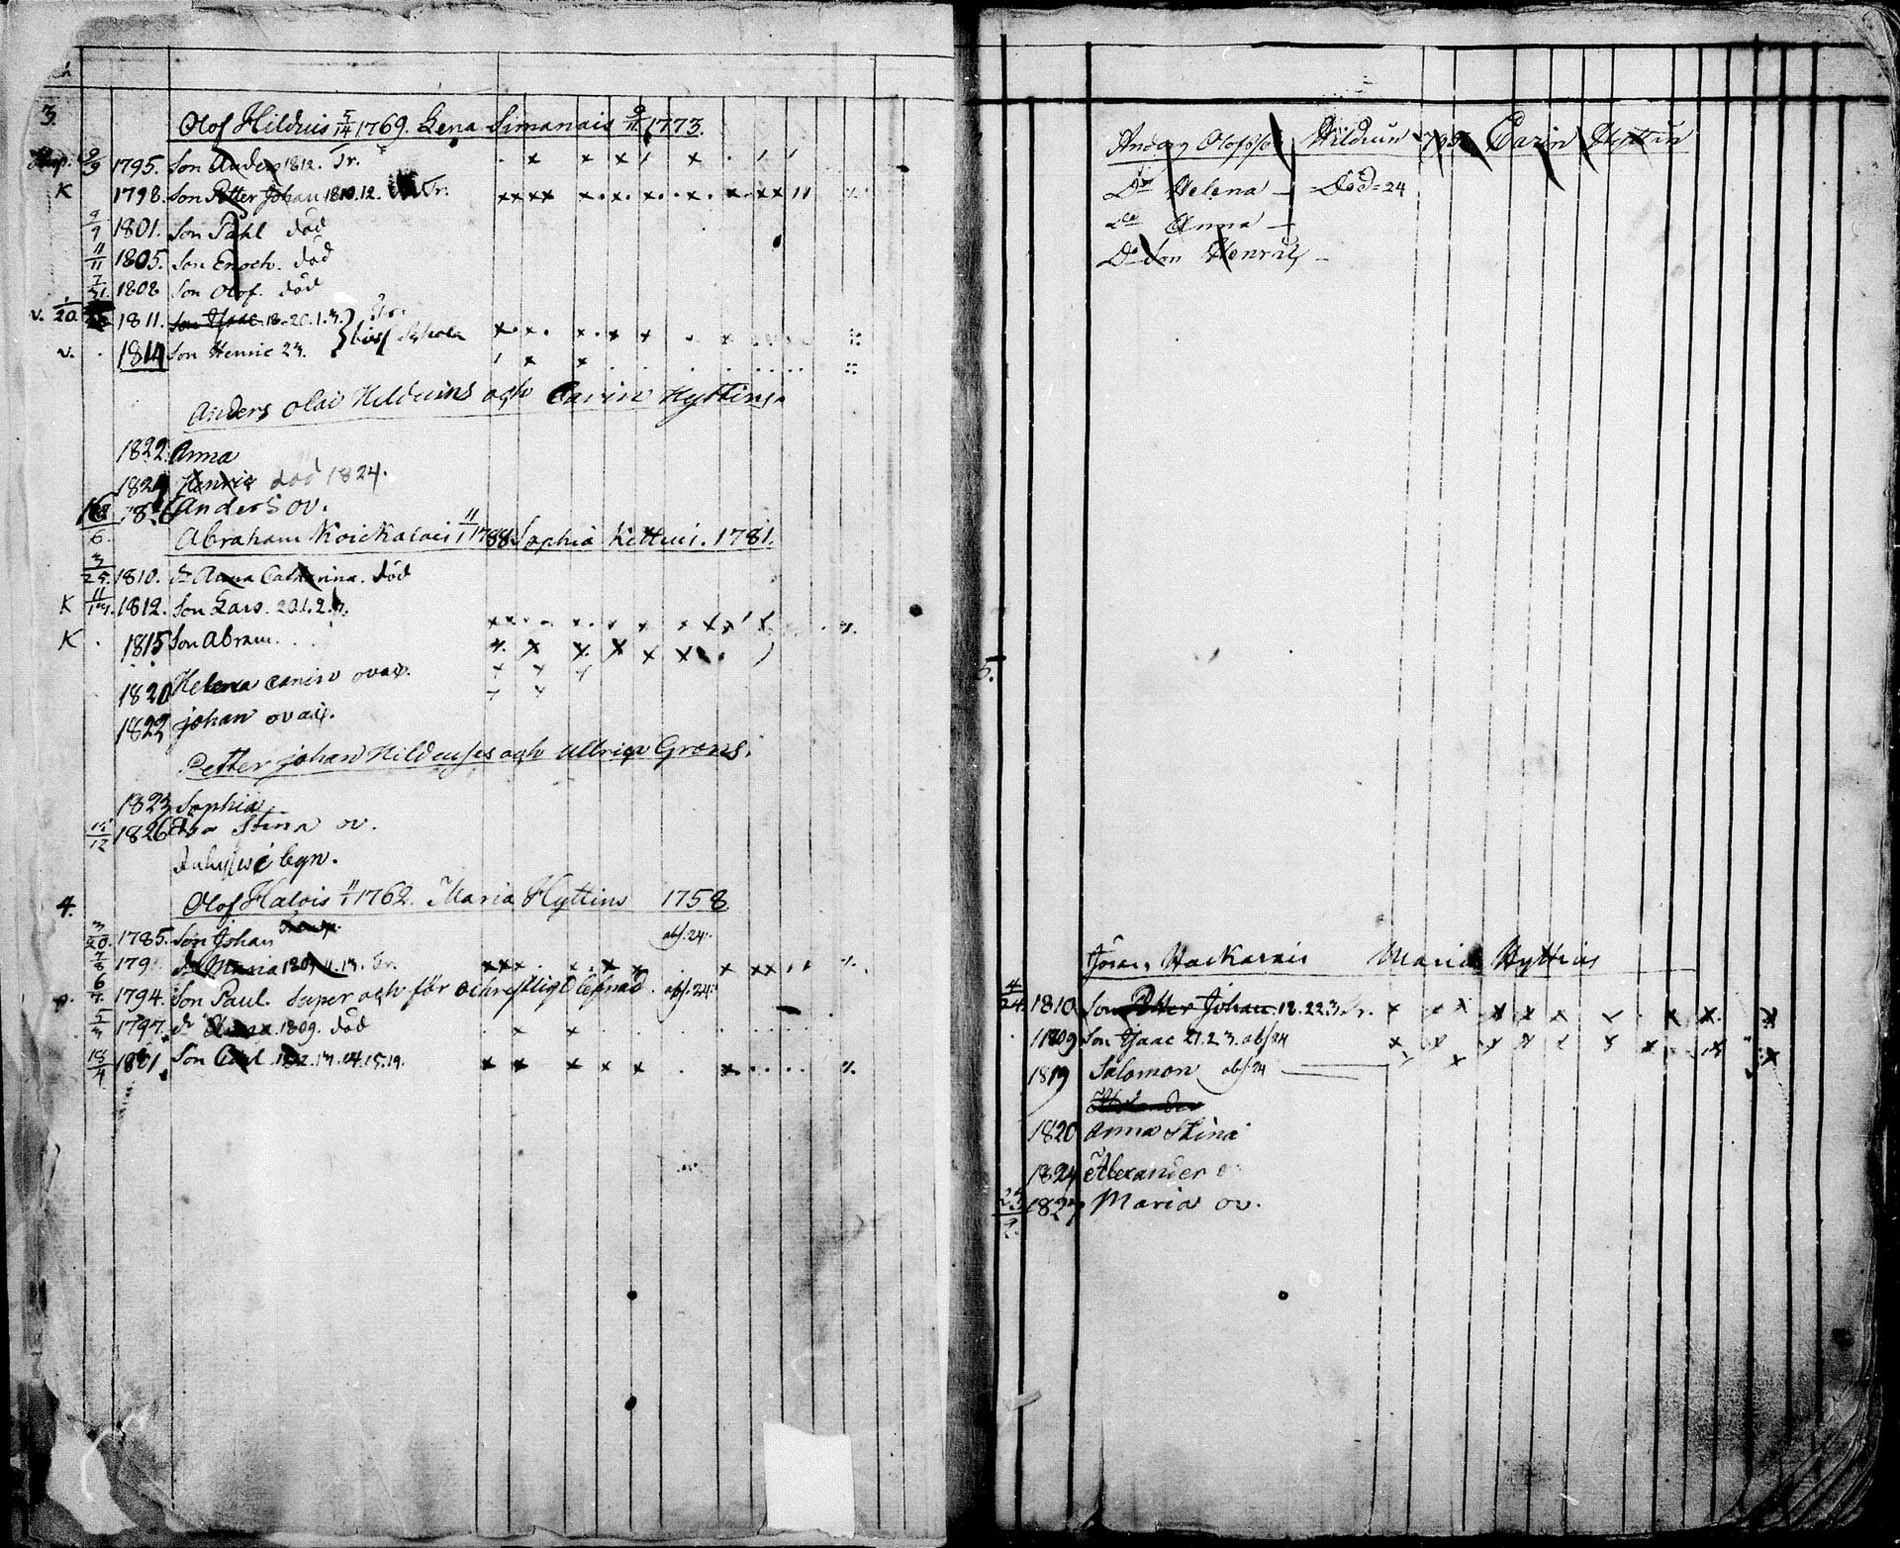 3.
Olof Hilduis 5/14 1769. Lena Simanais 9/11 1773.
9/9 1795. Son Anders 1812. Tr.
K 1798. Son Petter Johan 1810.12. Tr.
9/9 1801. Son Pahl död
11/11 1805. Son Enoch. död
7/31. 1808 Son Olof. död
v. 1/20. 1811. Son Isaac 18.20.1.3. Tr.
v. 1814 Son Henric 23.
Anders Olai Hilduins och Carin Hyttins.
1822. Anna
1824 Henric död 1824.
Anders ov.
6. Abraham Koickalais 11/1 1788. Sophia Kettui. 1781.
3/25. 1810. dr Anna Catharina. död
K 1812. Son Lars. 20.1.2.
K 1815 Son Abram.
1820 Helena ovac.
1822 johan ovac.
Petter johan och Ullrica Grons.
1823 Sophia
1826 Stina ov.
4.
Olof Halois 11/1 1762. Maria Hyttins 1758
3/20. 1785. Son Johan abs. 24.
7/8 179 dr Maria 1809.11.13. Tr.
6/7. 1794. Son Paul. super och för ochrestligt lefnad. abs. 24.
5/3 1797. dr 1809. död
18/4 1801 Son Carl 1812.13.14.15.19.
Anders Olofsson Hilduin 1795 Carin Hyttin
Dr Helena – Död = 24
Dr Anna –
Do Son Henric –
5.
Göran Hackarais Maria Hyttins
4/24 1810 Son Petter Johan 18.22.3. Tr.
1809 Son Isaac 21.2 3. abs 24
1819 Salomon abs. 24
1820 Anna Stina
1824 Alexander o
1827 Maria ov.